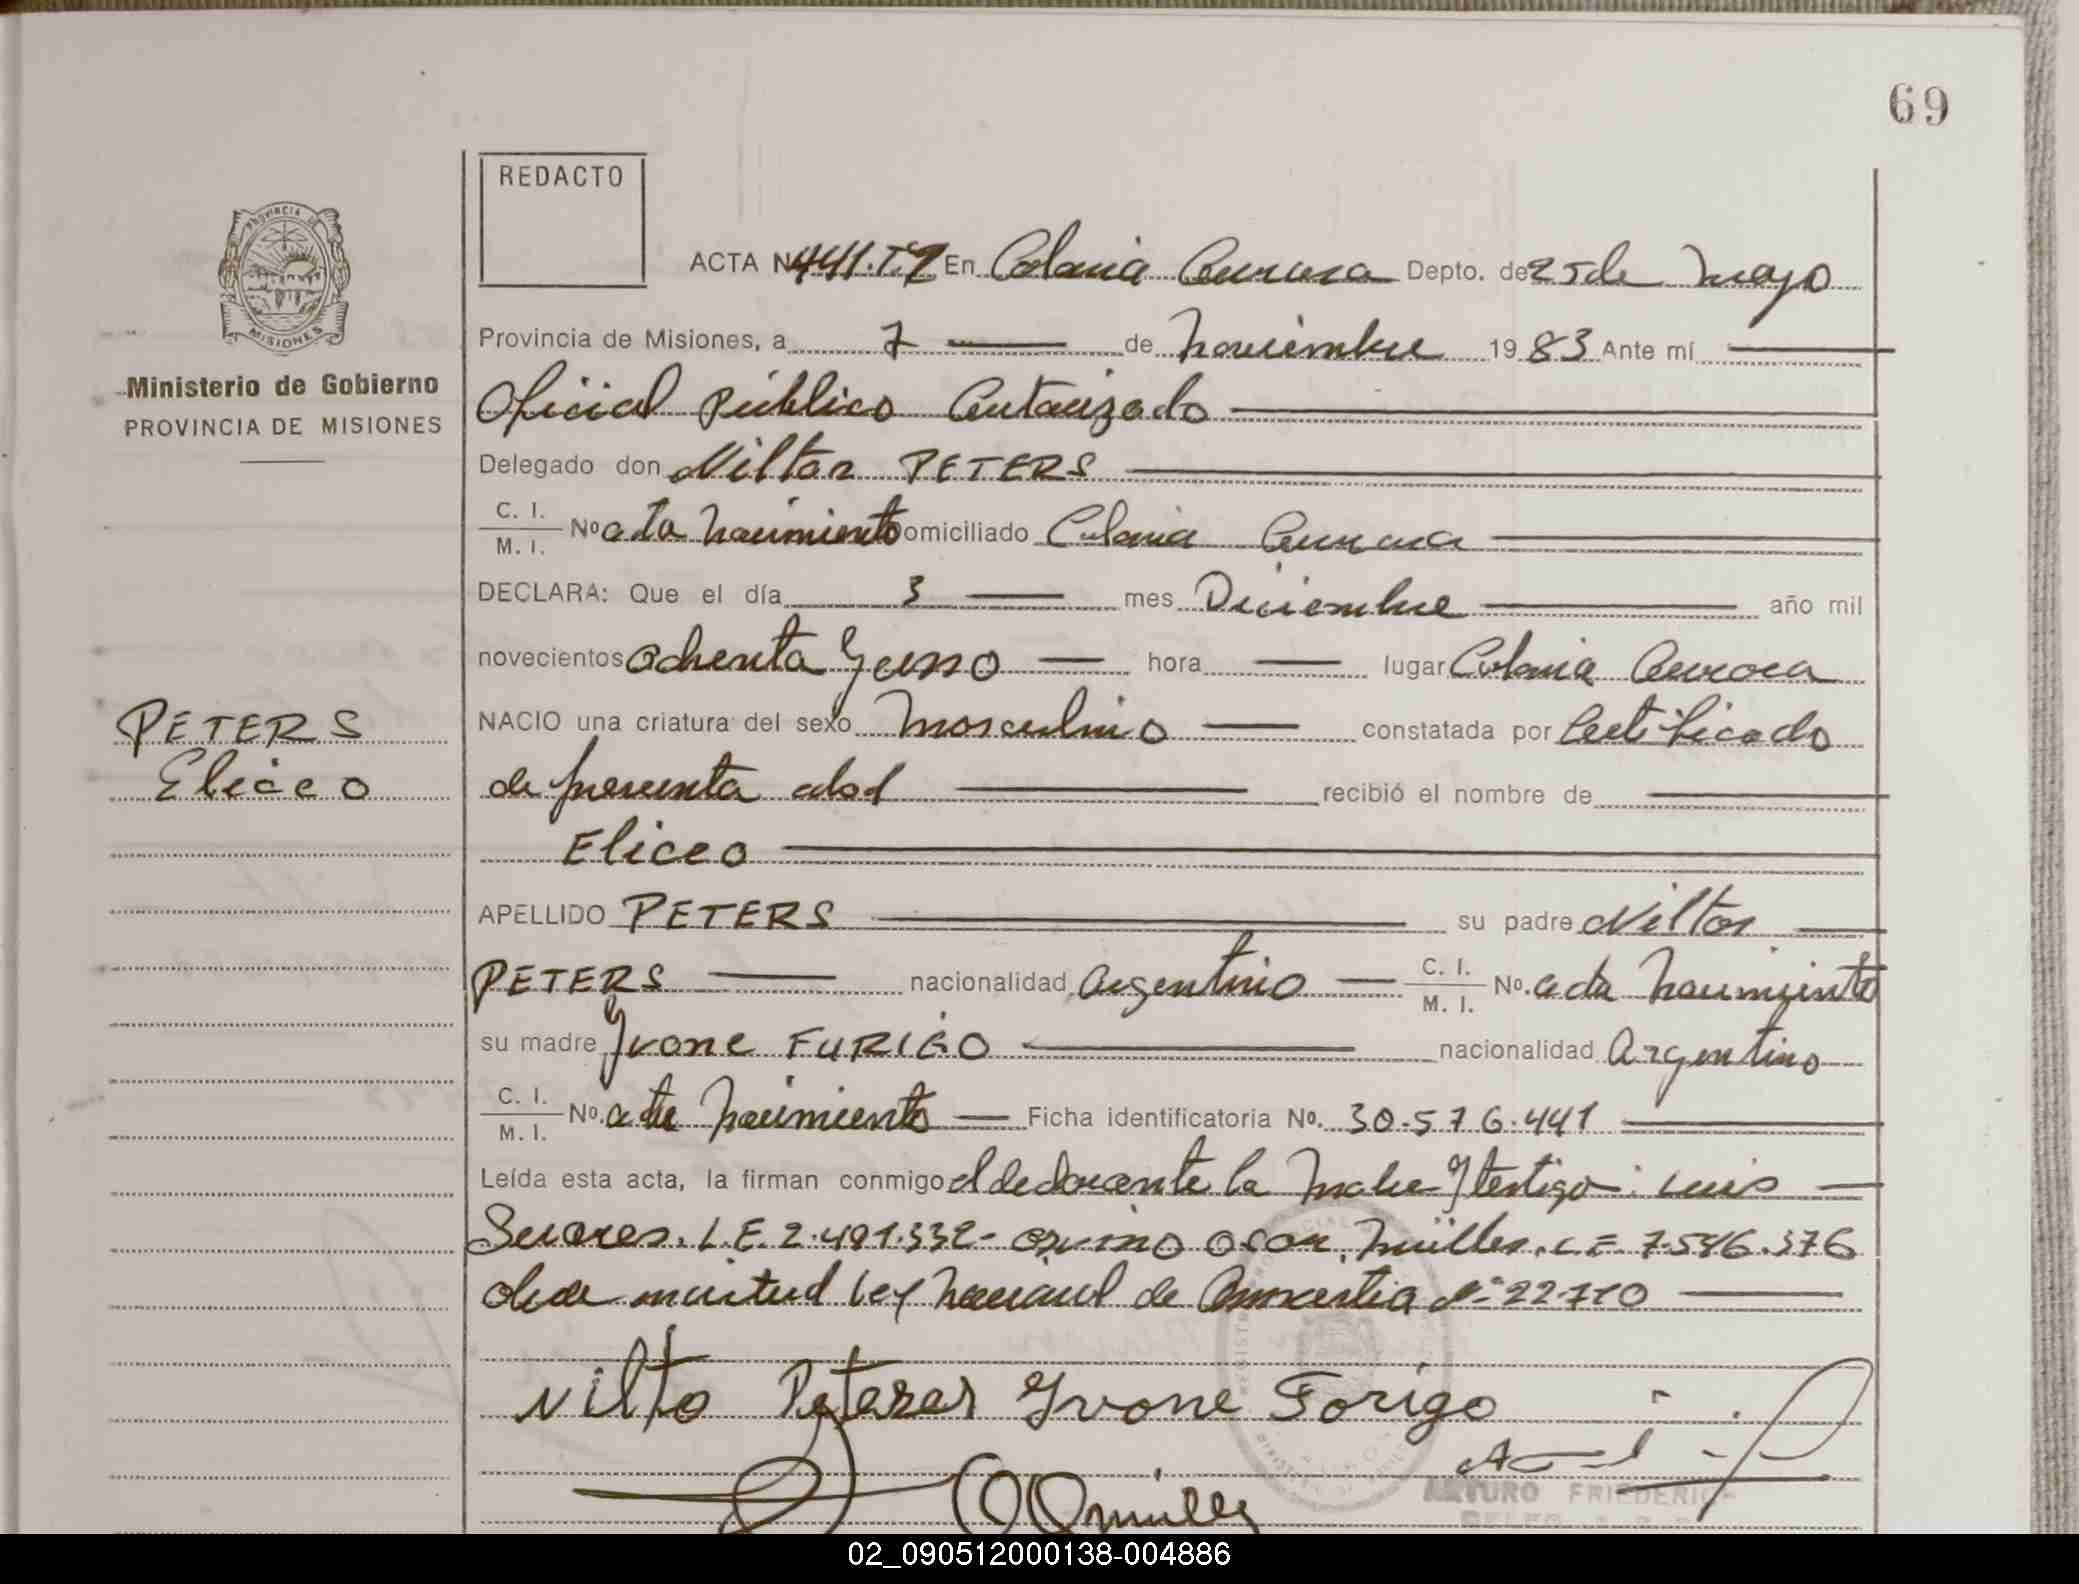 69
REDACTO
ACTA Nº 441.Tº2 En Colonia Aurora Depto. de 25 de Mayo
Provincia de Misiones, a 7 de Noviembre 1983 Ante mí
Oficial Público Autorizado
Delegado don Nilton PETERS
C. I.
M. I. Nº acta Nacimiento omiciliado Colonia Aurora
DECLARA: Que el día 3 mes Diciembre año mil
novecientos ochenta y uno hora lugar Colonia Aurora
NACIO una criatura del sexo Masculino constatada por Certificado
de presunta edad recibió el nombre de
Eliceo
APELLIDO PETERS su padre Nilton
PETERS nacionalidad Argentino C. I. M. I. No. acta Nacimiento
su madre Yvone FURIGO nacionalidad Argentino
C. I.
M. I. No. acta Nacimiento Ficha identificatoria No. 30.576.441
Leída esta acta, la firman conmigo el declarante la Madre y testigo: Luis
Suares. L.E. 2.491.332- Osvino Oscar Müller. L.E. 7.546.376
de Amnistia Nº 22.710
Nilto Peteres Yvone Forigo
ARTURO FRIEDERICH
PROVINCIA DE
MISIONES
Ministerio de Gobierno
PROVINCIA DE MISIONES
PETERS
Eliceo
02_090512000138-004886